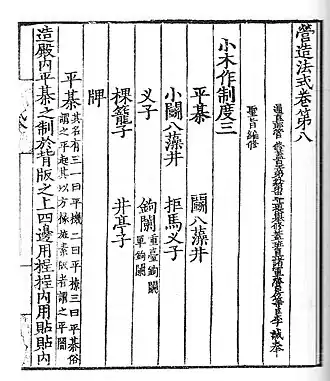 營造法式卷第八
通直郎管修蓋皇弟外第專一提舉修蓋班直諸軍營房等臣李誡奉
聖旨編修
小木作制度三
平棊 鬭八藻井
小鬭八藻井 拒馬义子
义子 鉤闌重臺鉤闌
單鉤闌
棵籠子 井亭子
牌
平棊其名有三一曰平機二曰平橑三曰平棊俗
謂之平起其以方椽施素版者謂之平闇
造殿内平棊之制於背版之上四邊用桯桯内用貼貼内